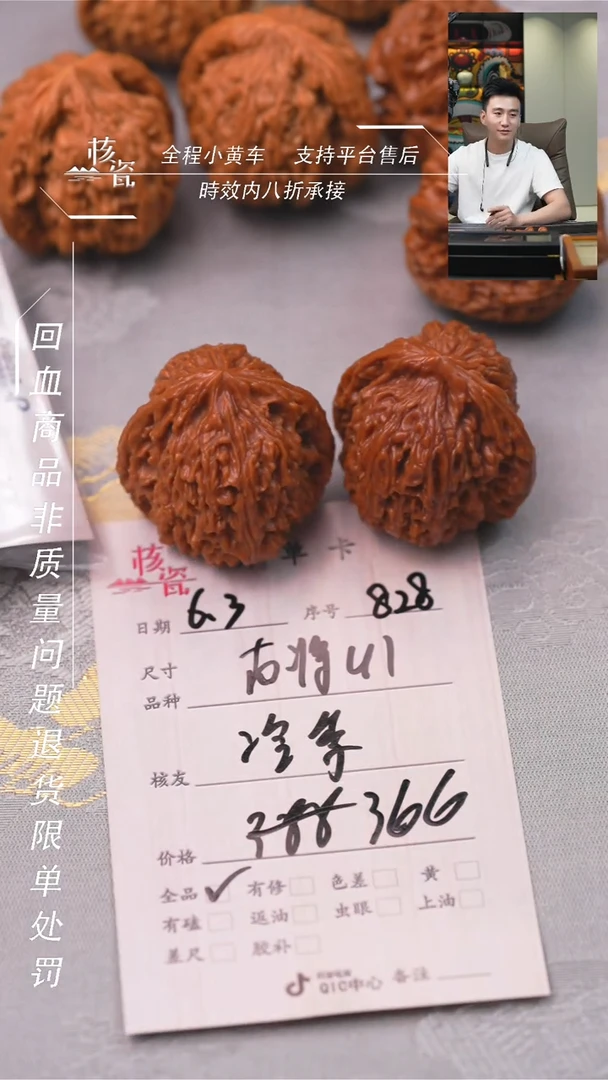 核瓷
全程小黄车 支持平台售后
時效内八折承接
回血商品非质量问题退货限单处罚
核瓷 单卡
日期 6.3 序号 828
尺寸
品种 南将41
核友
价格 388 366
全品 ✓ 有修 色差 黄
有磕 返油 虫眼 上油
差尺 胶补
QIC中心 备注